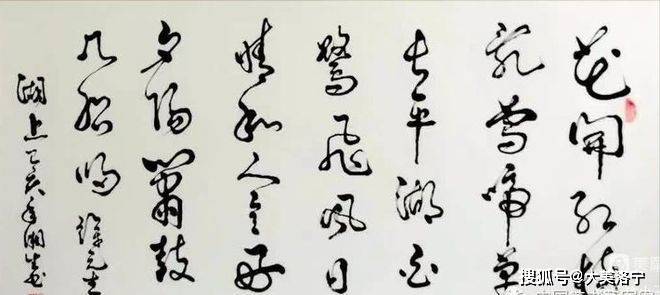 花开红树
乱莺啼草
长平湖白
鹭飞风日
晴和人意好
夕阳箫鼓
几船归 徐元杰
湖上 己亥年湘生书
搜狐号@大美洛宁